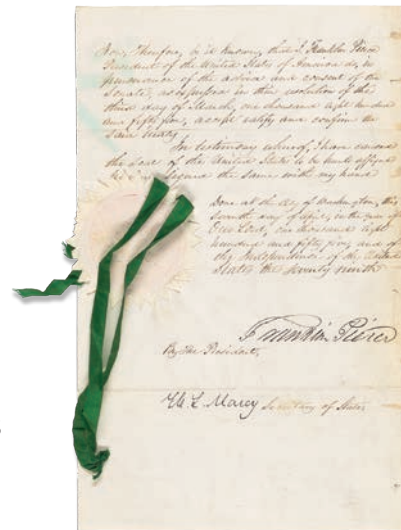 Now, Therefore, be it known, that I, Franklin Pierce
President of the United States of America do, in
pursuance of the advice and consent of the
Senate, as expressed in their resolution of the
third day of March, one thousand eight hundred
and fifty five, accept ratify and confirm the
said treaty.
In testimony whereof, I have caused
the seal of the United States to be hereto affixed
signed the same with my hand
Done at the City of Washington, this
day of April, in the year of
Our Lord, one thousand eight
hundred and fifty five, and of
the Independence of the United
States the seventy ninth
Franklin Pierce
By the President,
W. L. Marcy Secretary of State